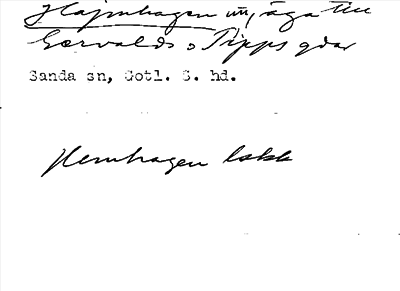 Hajnhagen m, äga till
Gervalds o Tipps gdar
Sanda sn, Gotl. S. hd.
Hemhagen lokk